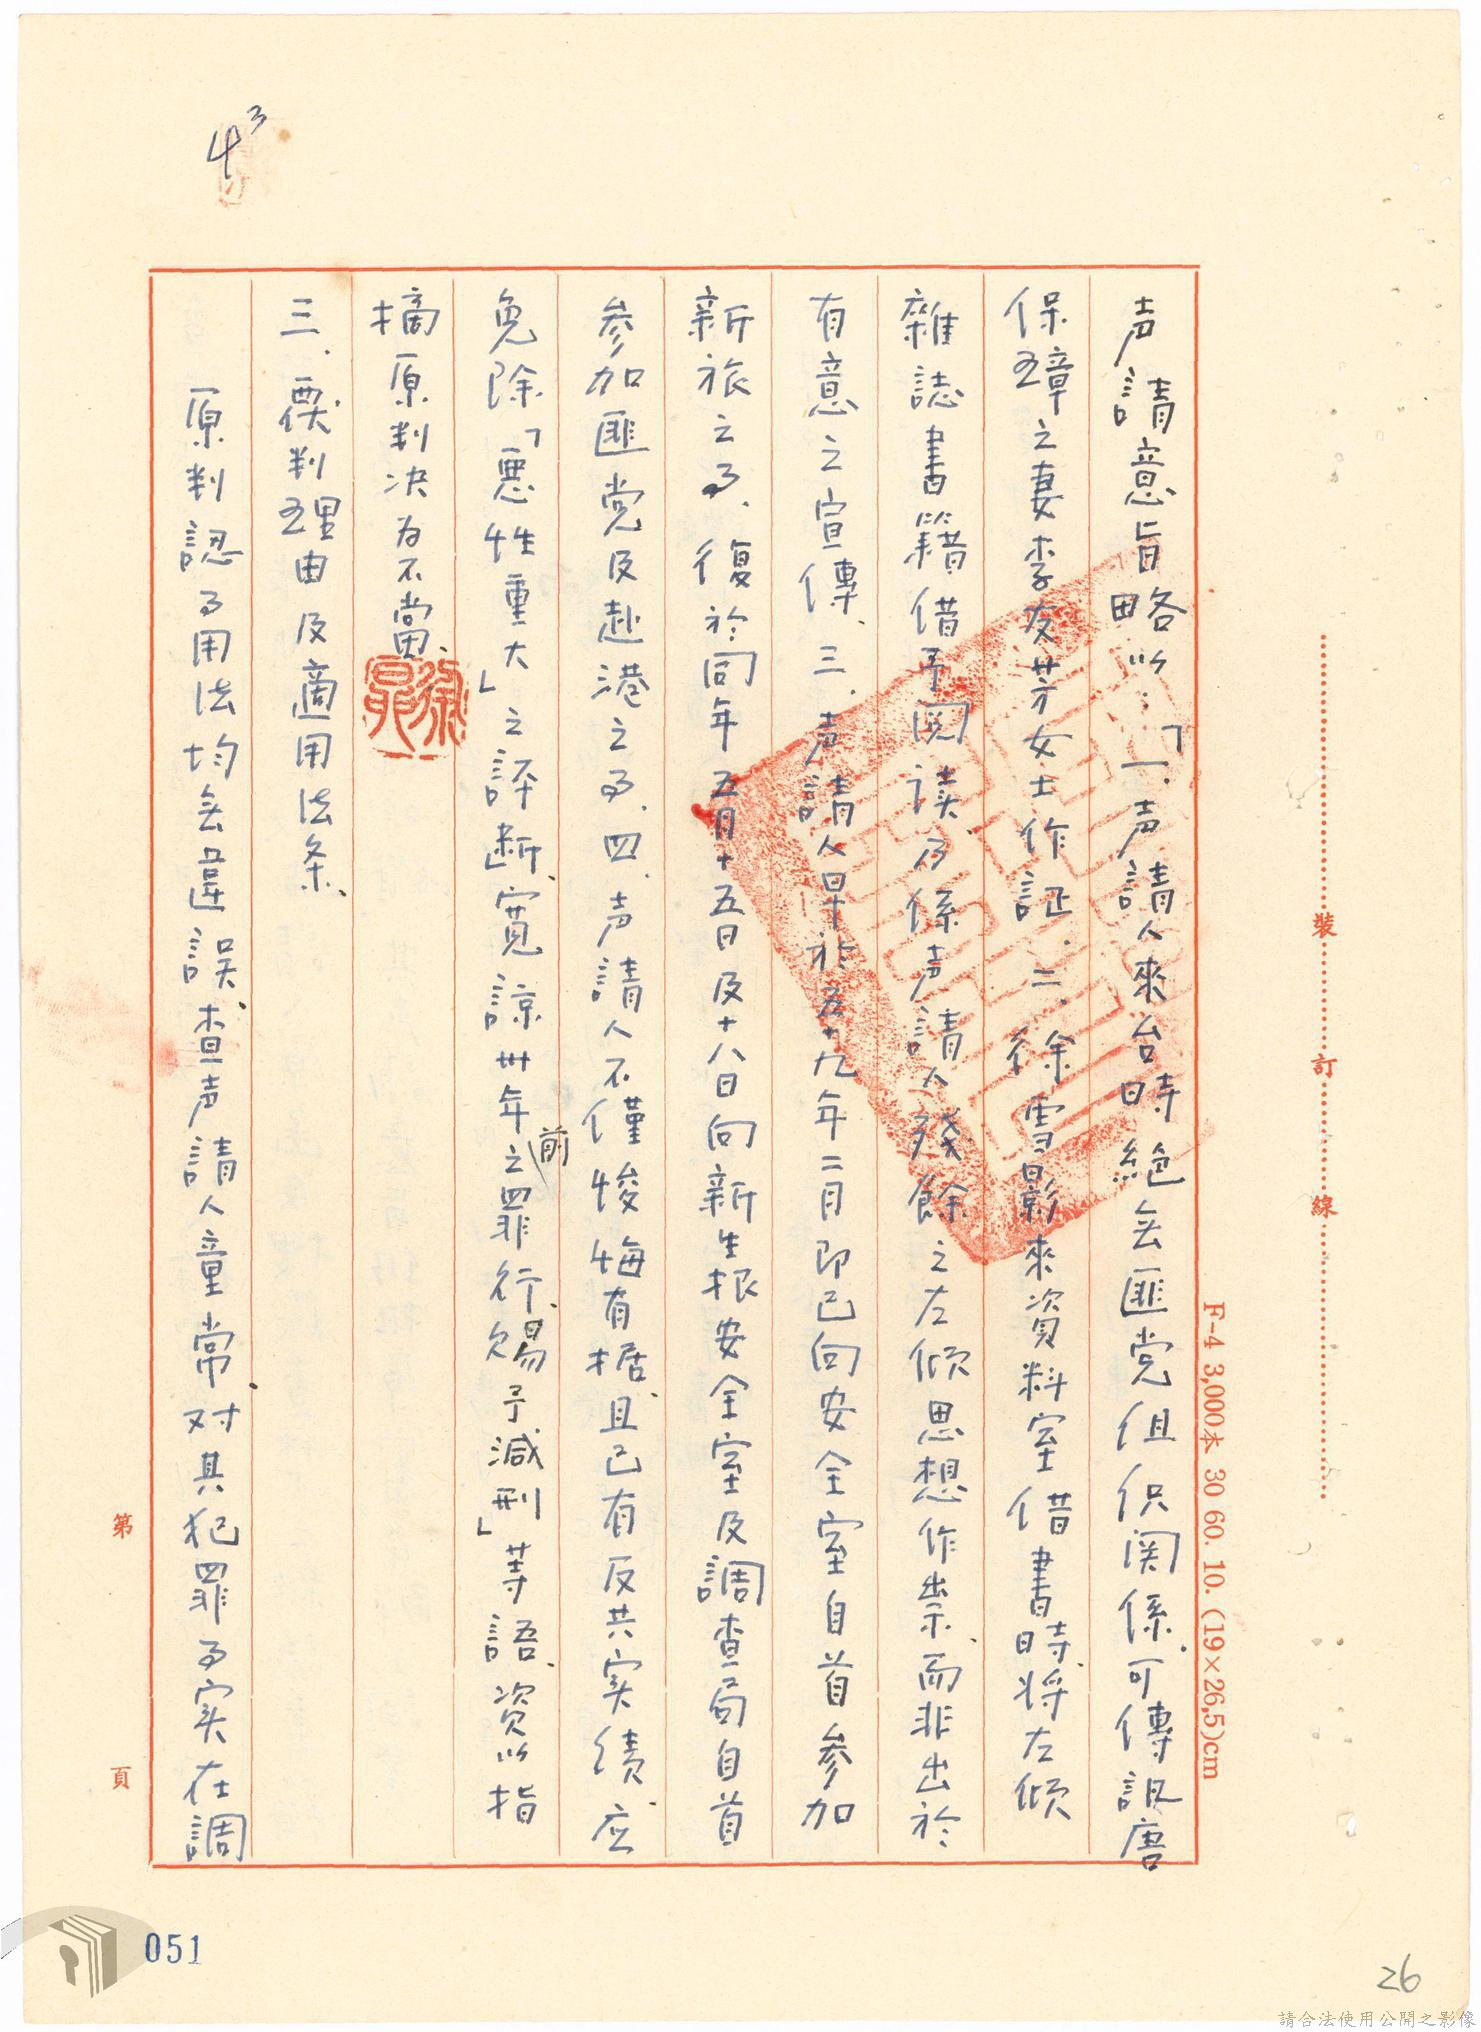 43
声請意旨略以：「一、声請人來台時絕无匪党组织関係、可傳訊唐
保璋之妻李友芬女士作証、二、徐雪影來資料室借書時、將左傾
雜誌書籍借予閱读、乃係声請人殘餘之左傾思想作祟、而非出於
有意之宣傳、三、声請人早於五十九年二月即已向安全室自首参加
新旅之事、復於同年五月十五日及十八日向新生报安全室及調查局自首
参加匪党及赴港之事、四、声請人不僅悛悔有据、且已有反共实绩、应
免除「惡性重大」之評断、寬諒卅年前之罪行、赐予減刑」等語、資以指
摘原判决为不當、
三、覆判理由及適用法条、
原判認事用法均无違誤、查声請人童常、对其犯罪事实在調
裝
訂
線
F-4 3,000本 30 60. 10. (19×26.5)cm
第
頁
051
26
請合法使用公開之影像